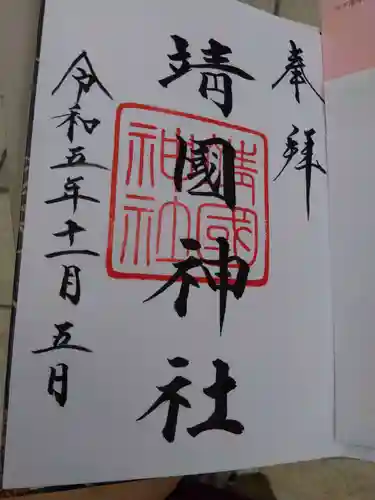 奉拝
靖國神社
靖國神社
令和五年十一月五日